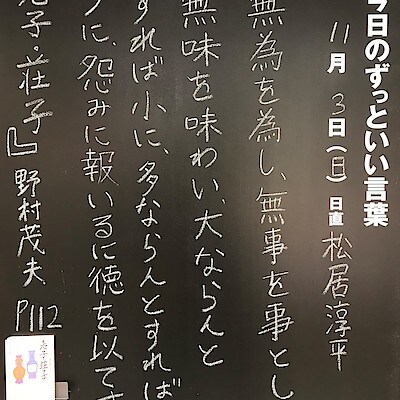 今日のずっといい言葉
11月3日(日)日直 松居淳平
無為を為し、無事を事とし
無味を味わい、大ならんと
すれば小に、多ならんとすれば
に、怨みに報いるに徳を以てす
老子・荘子』野村茂夫 P112
老子・荘子